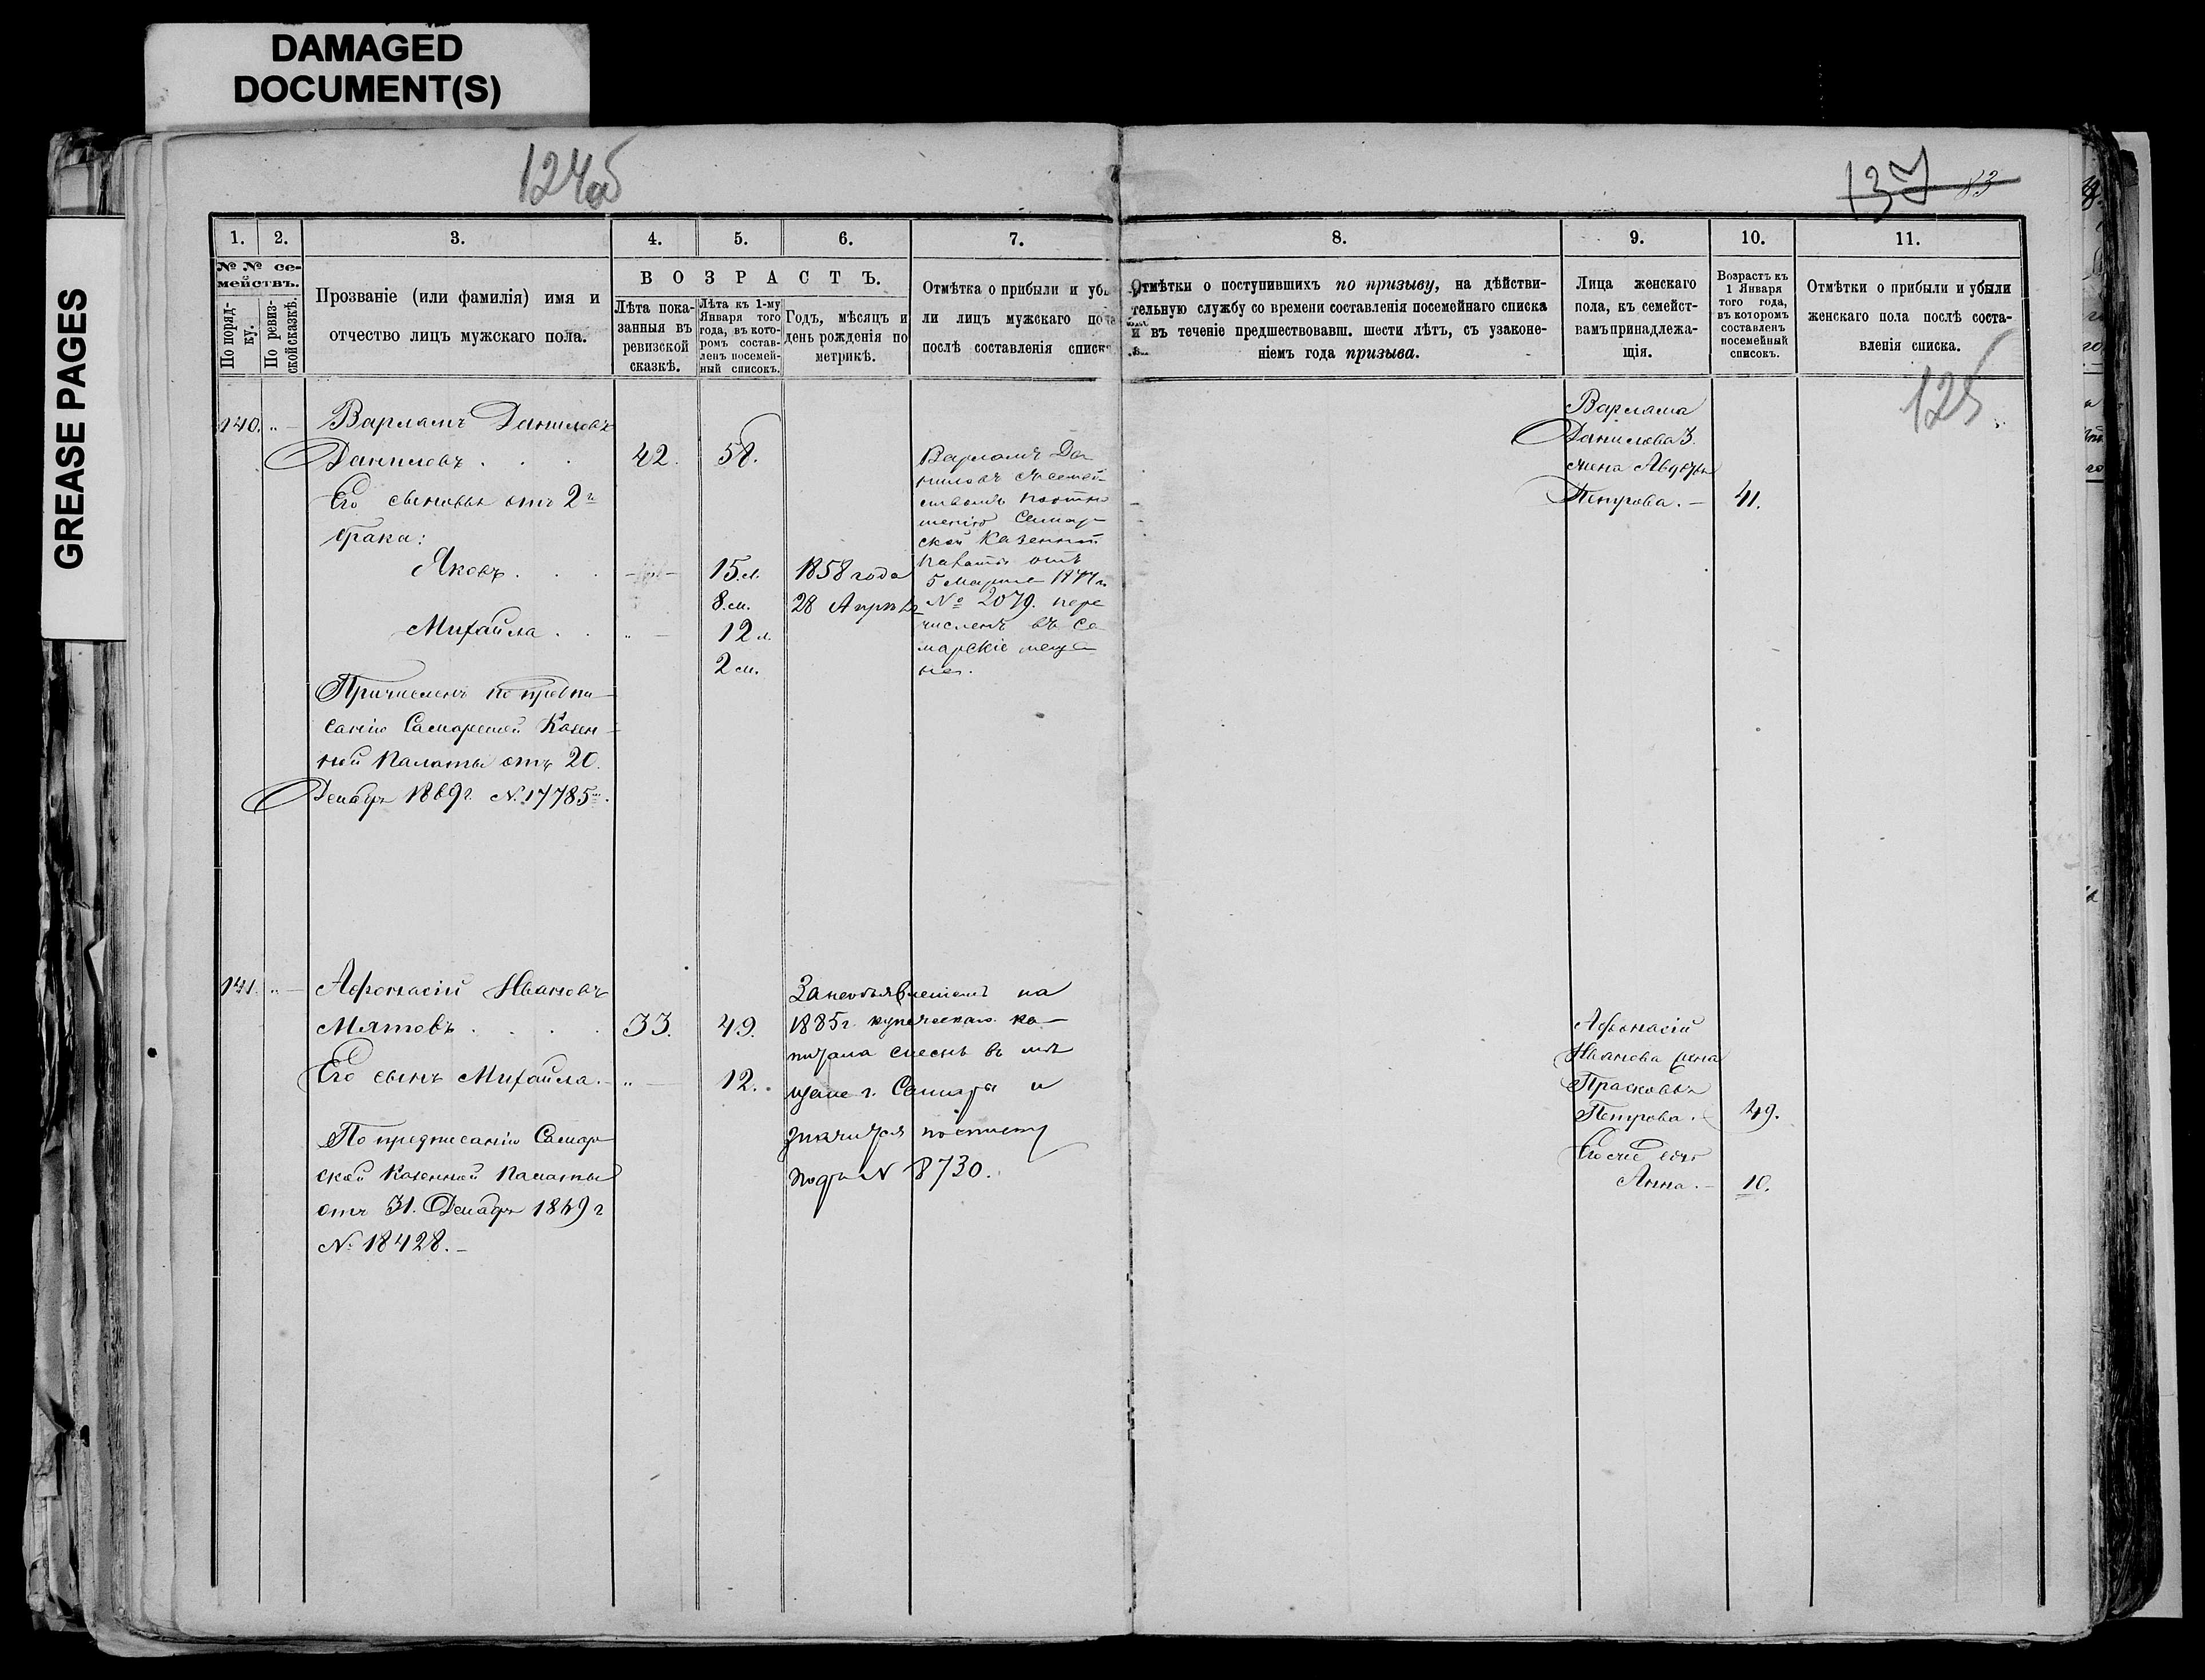 DAMAGED
DOCUMENT(S)
GREASE PAGES
124об
137 83
1. 2. 3. 4. 5. 6. 7. 8. 9. 10. 11.
№ № се-
мействъ.
По поряд-
ку.
По ревиз-
ской сказкѣ.
Прозваніе (или фамилія) имя и
отчество лицъ мужскаго пола.
ВОЗРАСТЪ.
Лѣта пока-
занныя въ
ревизской
сказкѣ.
Лѣта къ 1-му
Января того
года, въ кото-
ромъ состав-
ленъ посемей-
ный списокъ.
Годъ, мѣсяцъ и
день рожденія по
метрикѣ.
Отмѣтка о прибыли и убы
ли лицъ мужскаго пола
послѣ составленія списка
Отмѣтки о поступившихъ по призыву, на дѣйстви-
тельную службу со времени составленія посемейнаго списка
и въ теченіе предшествовавш. шести лѣтъ, съ узаконе-
ніемъ года призыва.
Лица женскаго
пола, къ семейст-
вамъ принадлежа-
щія.
Возрастъ къ
1 Января
того года,
въ которомъ
составленъ
посемейный
списокъ.
Отмѣтки о прибыли и убыли
женскаго пола послѣ соста-
вленія списка.
125
140. „ — Варламъ Даниловъ
Даниловъ . . . 42. 58.
Его сыновья отъ 2г
брака:
Яковъ . . . 15.л. 1858 года
8.м. 28 Апрѣля
Михайла . . „ — 12 л.
2 м.
Причисленъ по предпи-
санію Самарской Казен-
ной Палаты отъ 20.
Декабря 1869г. №17785.
Варламъ Да
ниловъ съ семей-
ствомъ по отно
шенію Самар-
ской Казенной
Палаты отъ
5 Марта 1874 г.
№ 2079. пере
численъ въ Са
марскіе меща
не.
Варлама
Данилова 3.
жена Авдотья
Петрова. — 41.
141. „ — Афонасій Ивановъ
Мятовъ . . . . 33. 49.
Его сынъ Михайла. — „ — 12.
По предписанію Самар
ской Казенной Палаты
отъ 31. Декабря 1869 г
№ 18428. —
За необъявленіемъ на
1885г. купеческаго ка-
питала въ мѣ
щане г. Самары и
значится по
подъ № 8730.
Афонасій
Иванова жена
Прасковья
Петрова. 49.
Анна. — 10.